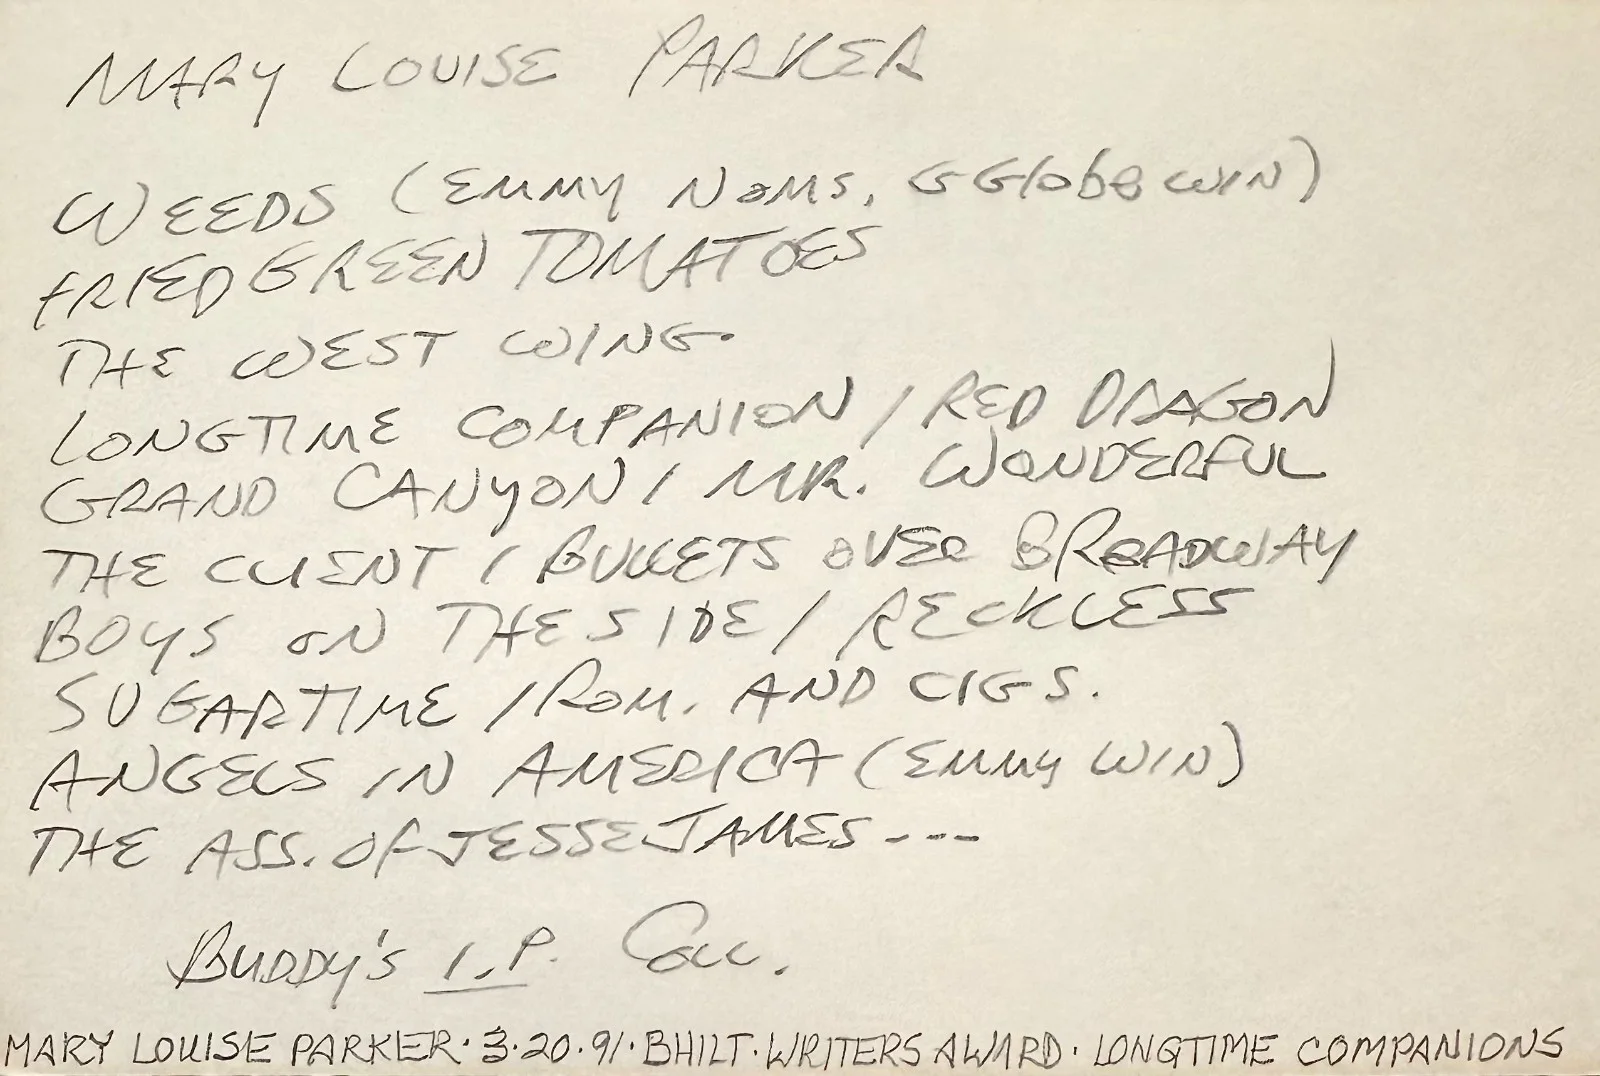 MARY LOUISE PARKER
WEEDS (EMMY NOMS, GGlobe WIN)
FRIED GREEN TOMATOES
THE WEST WING.
LONGTIME COMPANION / RED DRAGON
GRAND CANYON / MR. WONDERFUL
THE CLIENT / BULLETS OVER BROADWAY
BOYS ON THE SIDE / RECKLESS
SUGARTIME / ROM. AND CIGS.
ANGELS IN AMERICA (EMMY WIN)
THE ASS. OF JESSE JAMES ---
BUDDY'S I.P. Coll.
MARY LOUISE PARKER · 3·20·91 · BHILT · WRITERS AWARD · LONGTIME COMPANIONS